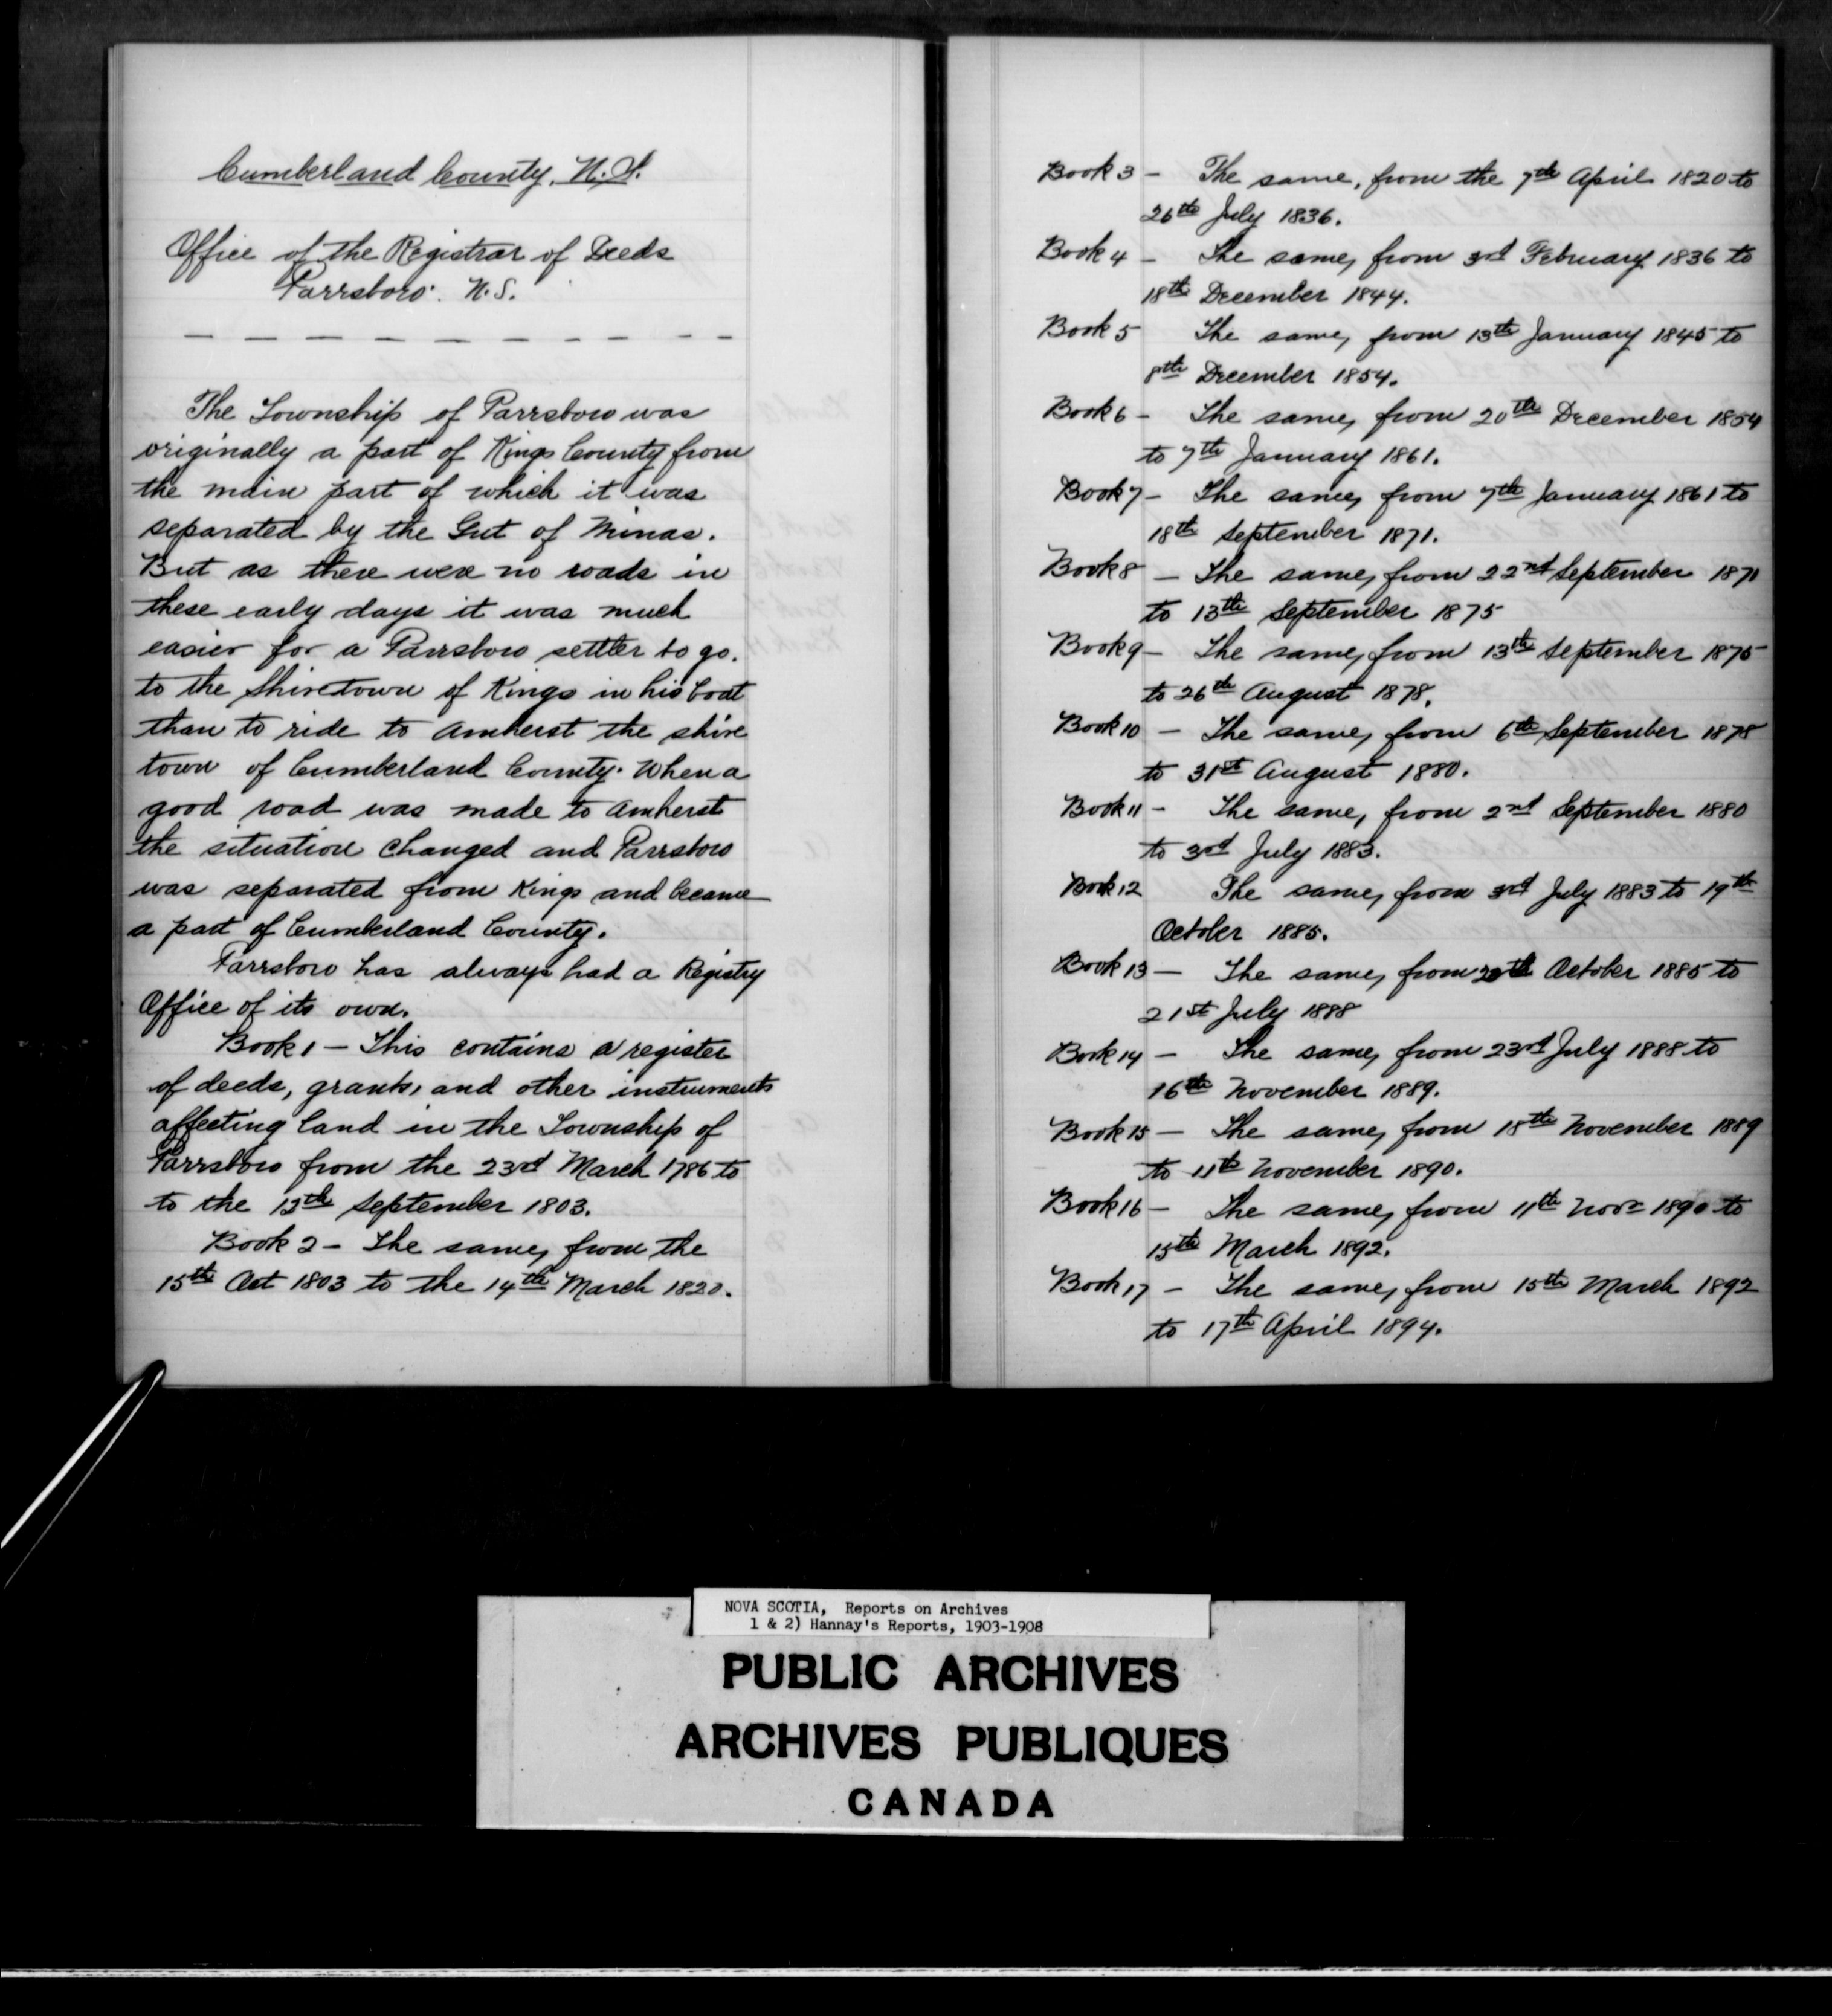 Cumberland County, N.S.
Office of the Registrar of Deeds
Parrsboro. N.S.
The Township of Parrsboro was
originally a part of Kings County from
the main part of which it was
separated by the Gut of Minas.
But as there were no roads in
these early days it was much
easier for a Parrsboro settler to go.
to the Shiretown of Kings in his boat
than to ride to Amherst the shire
town of Cumberland County. When a
good road was made to Amherst
the situation changed and Parrsboro
was separated from Kings and became
a part of Cumberland County.
Parrsboro has always had a Registry
Office of its own.
Book 1 — This contains a register
of deeds, grants, and other instruments
affecting land in the Township of
Parrsboro from the 23rd March 1786 to
to the 13th September 1803.
Book 2 — The same, from the
15th Oct 1803 to the 14th March 1820.
Book 3 — The same, from the 7th April 1820 to
26th July 1836.
Book 4 — The same, from 3rd February 1836 to
18th December 1844.
Book 5 The same, from 13th January 1845 to
8th December 1854.
Book 6 — The same, from 20th December 1854
to 7th January 1861.
Book 7 — The same, from 7th January 1861 to
18th September 1871.
Book 8 — The same, from 22nd September 1871
to 13th September 1875
Book 9 — The same, from 13th September 1875
to 26th August 1878.
Book 10 — The same, from 6th September 1878
to 31st August 1880.
Book 11 — The same, from 2nd September 1880
to 3rd July 1883.
Book 12 The same, from 3rd July 1883 to 19th
October 1885.
Book 13 — The same, from 20th October 1885 to
21st July 1888
Book 14 — The same, from 23rd July 1888 to
16th November 1889.
Book 15 — The same, from 18th November 1889
to 11th November 1890.
Book 16 — The same, from 11th Novr 1890 to
15th March 1892.
Book 17 — The same, from 15th March 1892
to 17th April 1894.
NOVA SCOTIA, Reports on Archives
1 & 2) Hannay's Reports, 1903-1908
PUBLIC ARCHIVES
ARCHIVES PUBLIQUES
CANADA